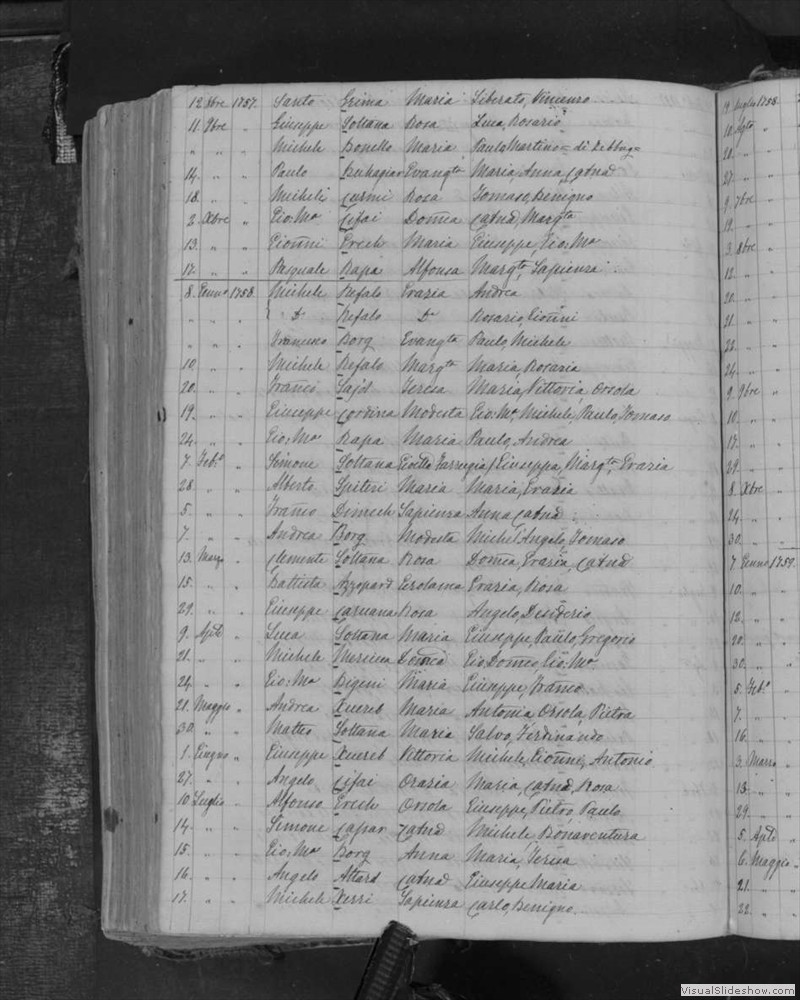 12. 8bre 1757. Santo Grima Maria Liberato, Vincenzo
11. 9bre " Giuseppe Soltana Rosa Luca, Rosario
" " " Michele Bonello Maria Paulo Martino = di Debbuga
14. " " Paulo Buhagiar Evangta Maria, Anna, Catna
18. " " Micheli Curmi Rosa Tomaso, Benigno
2. Xbre " Gio: Ma Cifai Domca Catna, Margta
13. " " Gionni Grech Maria Giuseppe, Gio: Ma
17. " " Pasquale Rapa Alfonsa Margta, Sapienza
8. Genno 1758. Michele Refalo Grazia Andrea
" " " Do Refalo Da Rosario, Gionni
" " " Francesco Borg Evangta Paulo, Michele
10. " " Michele Refalo Margta Maria, Rosaria
20. " " Franco Teresa Maria, Vittoria, Orsola
19. " " Giuseppe Cordina Modesta Gio: Ma, Michele, Paulo, Tomaso
24. " " Gio: Ma Rapa Maria Paulo, Andrea
7. Febo " Simone Soltana Farrugia Giuseppa, Margta Grazia
28. " " Alberto Spiteri Maria Maria, Grazia
5. " " Franco Dimech Sapienza Anna, Catna
7. " " Andrea Borg Modesta Michel'Angelo, Tomaso
13. Marzo " Clemente Soltana Rosa Domca, Grazia, Catna
15. " " Battista Azzopard Gerolama Grazia, Rosa
29. " " Giuseppe Caruana Rosa Angelo, Desiderio
9. Aple " Luca Soltana Maria Giuseppe, Paulo, Gregorio
21. " " Michele Mercieca Domca Gio: Domco, Gio: Ma
24. " " Gio: Ma Bigeni Maria Giuseppe, Franco
21. Maggio " Andrea Xuereb Maria Antonia, Orsola, Pietra
30. " " Matteo Soltana Maria Salvo, Ferdinando
1. Giugno " Giuseppe Xuereb Vittoria Michele, Gionni, Antonio
27. " " Angelo Cifai Grazia Maria, Catna, Rosa
10 Luglio " Alfonso Grech Orsola Giuseppe, Pietro, Paulo
14. " " Simone Caspar Catna Michele, Bonaventura
15. " " Gio: Ma Borg Anna Maria, Teresa
16. " " Angelo Attard Catna Giuseppe Maria
17. " " Michele Xerri Sapienza Carlo, Benigno
9 Luglio 1758.
10. Agto "
20. " "
27. " "
9. 7bre "
19. " "
3. 8bre "
12. " "
20. " "
21. " "
22. " "
24. " "
9. 9bre "
10. " "
17. " "
29. " "
8. Xbre "
24. " "
30. " "
7. Genno 1759.
10. " "
12. " "
20. " "
30. " "
5. Febo "
7. " "
16. " "
3. Marzo "
13. " "
29. " "
5. Aple "
6. Maggio "
21. " "
22. " "
VisualSlideshow.com